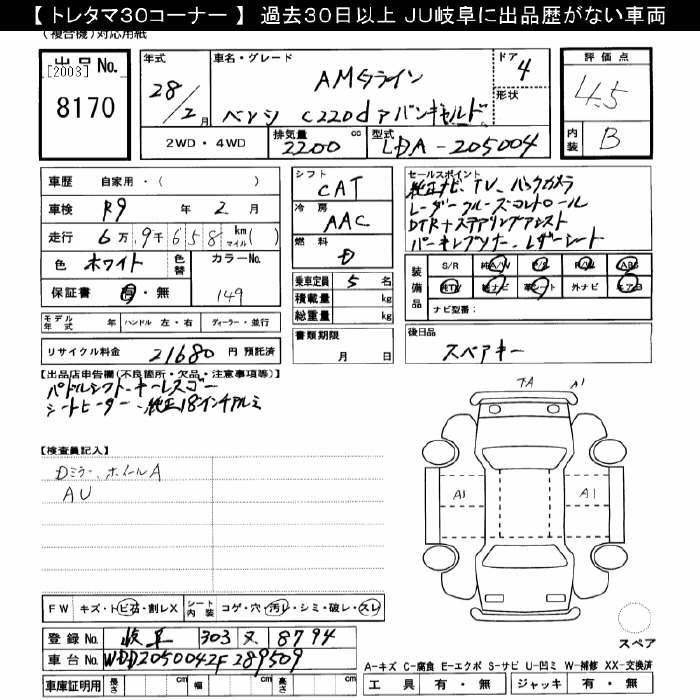 【 トレタマ30コーナー 】 過去30日以上 JU岐阜に出品歴がない車両
(複合機)対応用紙
出 品 No.
[2003]
8170
年式
28/2月
車名・グレード
AMGライン
ベンツ C220d アバンギャルド
ドア
4
形状
2WD・4WD
排気量
2200 cc
型式
LDA-205004
評価点
4.5
内装
B
車歴 自家用・( )
車検 R9 年 2 月
走行 6万 9千 658 km マイル( )
色 ホワイト 色替 カラーNo.
149
保証書 有・無
モデル年式 年 ハンドル 左・右 ディーラー・並行
リサイクル料金 21680 円 預託済
シフト
CAT
冷房
AAC
燃料
D
乗車定員 5 名
積載量 kg
総重量 kg
書類期限
月 日
セールスポイント
純正ナビ、TV、バックカメラ
レーダークルーズコントロール
DTR+ステアリングアシスト
パーキングソナー、レザーシート
装備品
S/R 純A/W P/S P/W ABS
純TV 純ナビ 革シート 外ナビ エアB
ナビ型番:
後日品
スペアキー
【出品店申告欄(不良箇所・欠品・注意事項等)】
パドルシフト、キーレスゴー
シートヒーター、純正18インチアルミ
【検査員記入】
Dミラー、ホイールA
AU
TA A1
A1 A1
スペア
FW キズ・トビ石・割レX シート内装 コゲ・穴・汚レ・シミ・破レ・スレ
登録 No. 岐阜 303 ヌ 8794
車台 No. WDD2050042F289509
A-キズ C-腐食 E-エクボ S-サビ U-凹ミ W-補修 XX-交換済
車庫証明用 長さ cm 幅 cm 高さ cm
工具 有・無 ジャッキ 有・無